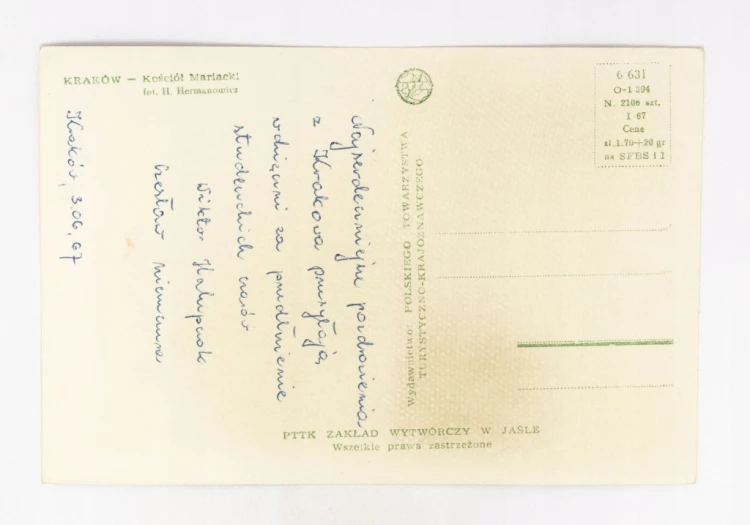 KRAKÓW — Kościół Mariacki
fot. H. Hermanowicz
Kraków, 3.06.67
Najserdeczniejsze pozdrowienia
z Krakowa przesyłają
wdzięczni za przedłużenie
studenckich czasów
Wiktor
Czesław
Wydawnictwo: POLSKIEGO TOWARZYSTWA
TURYSTYCZNO-KRAJOZNAWCZEGO
6 631
O-1 394
N. 2100 szt.
I 67
Cena
zł.1.70+20 gr
na SFBS i I
PTTK ZAKŁAD WYTWÓRCZY W JAŚLE
Wszelkie prawa zastrzeżone